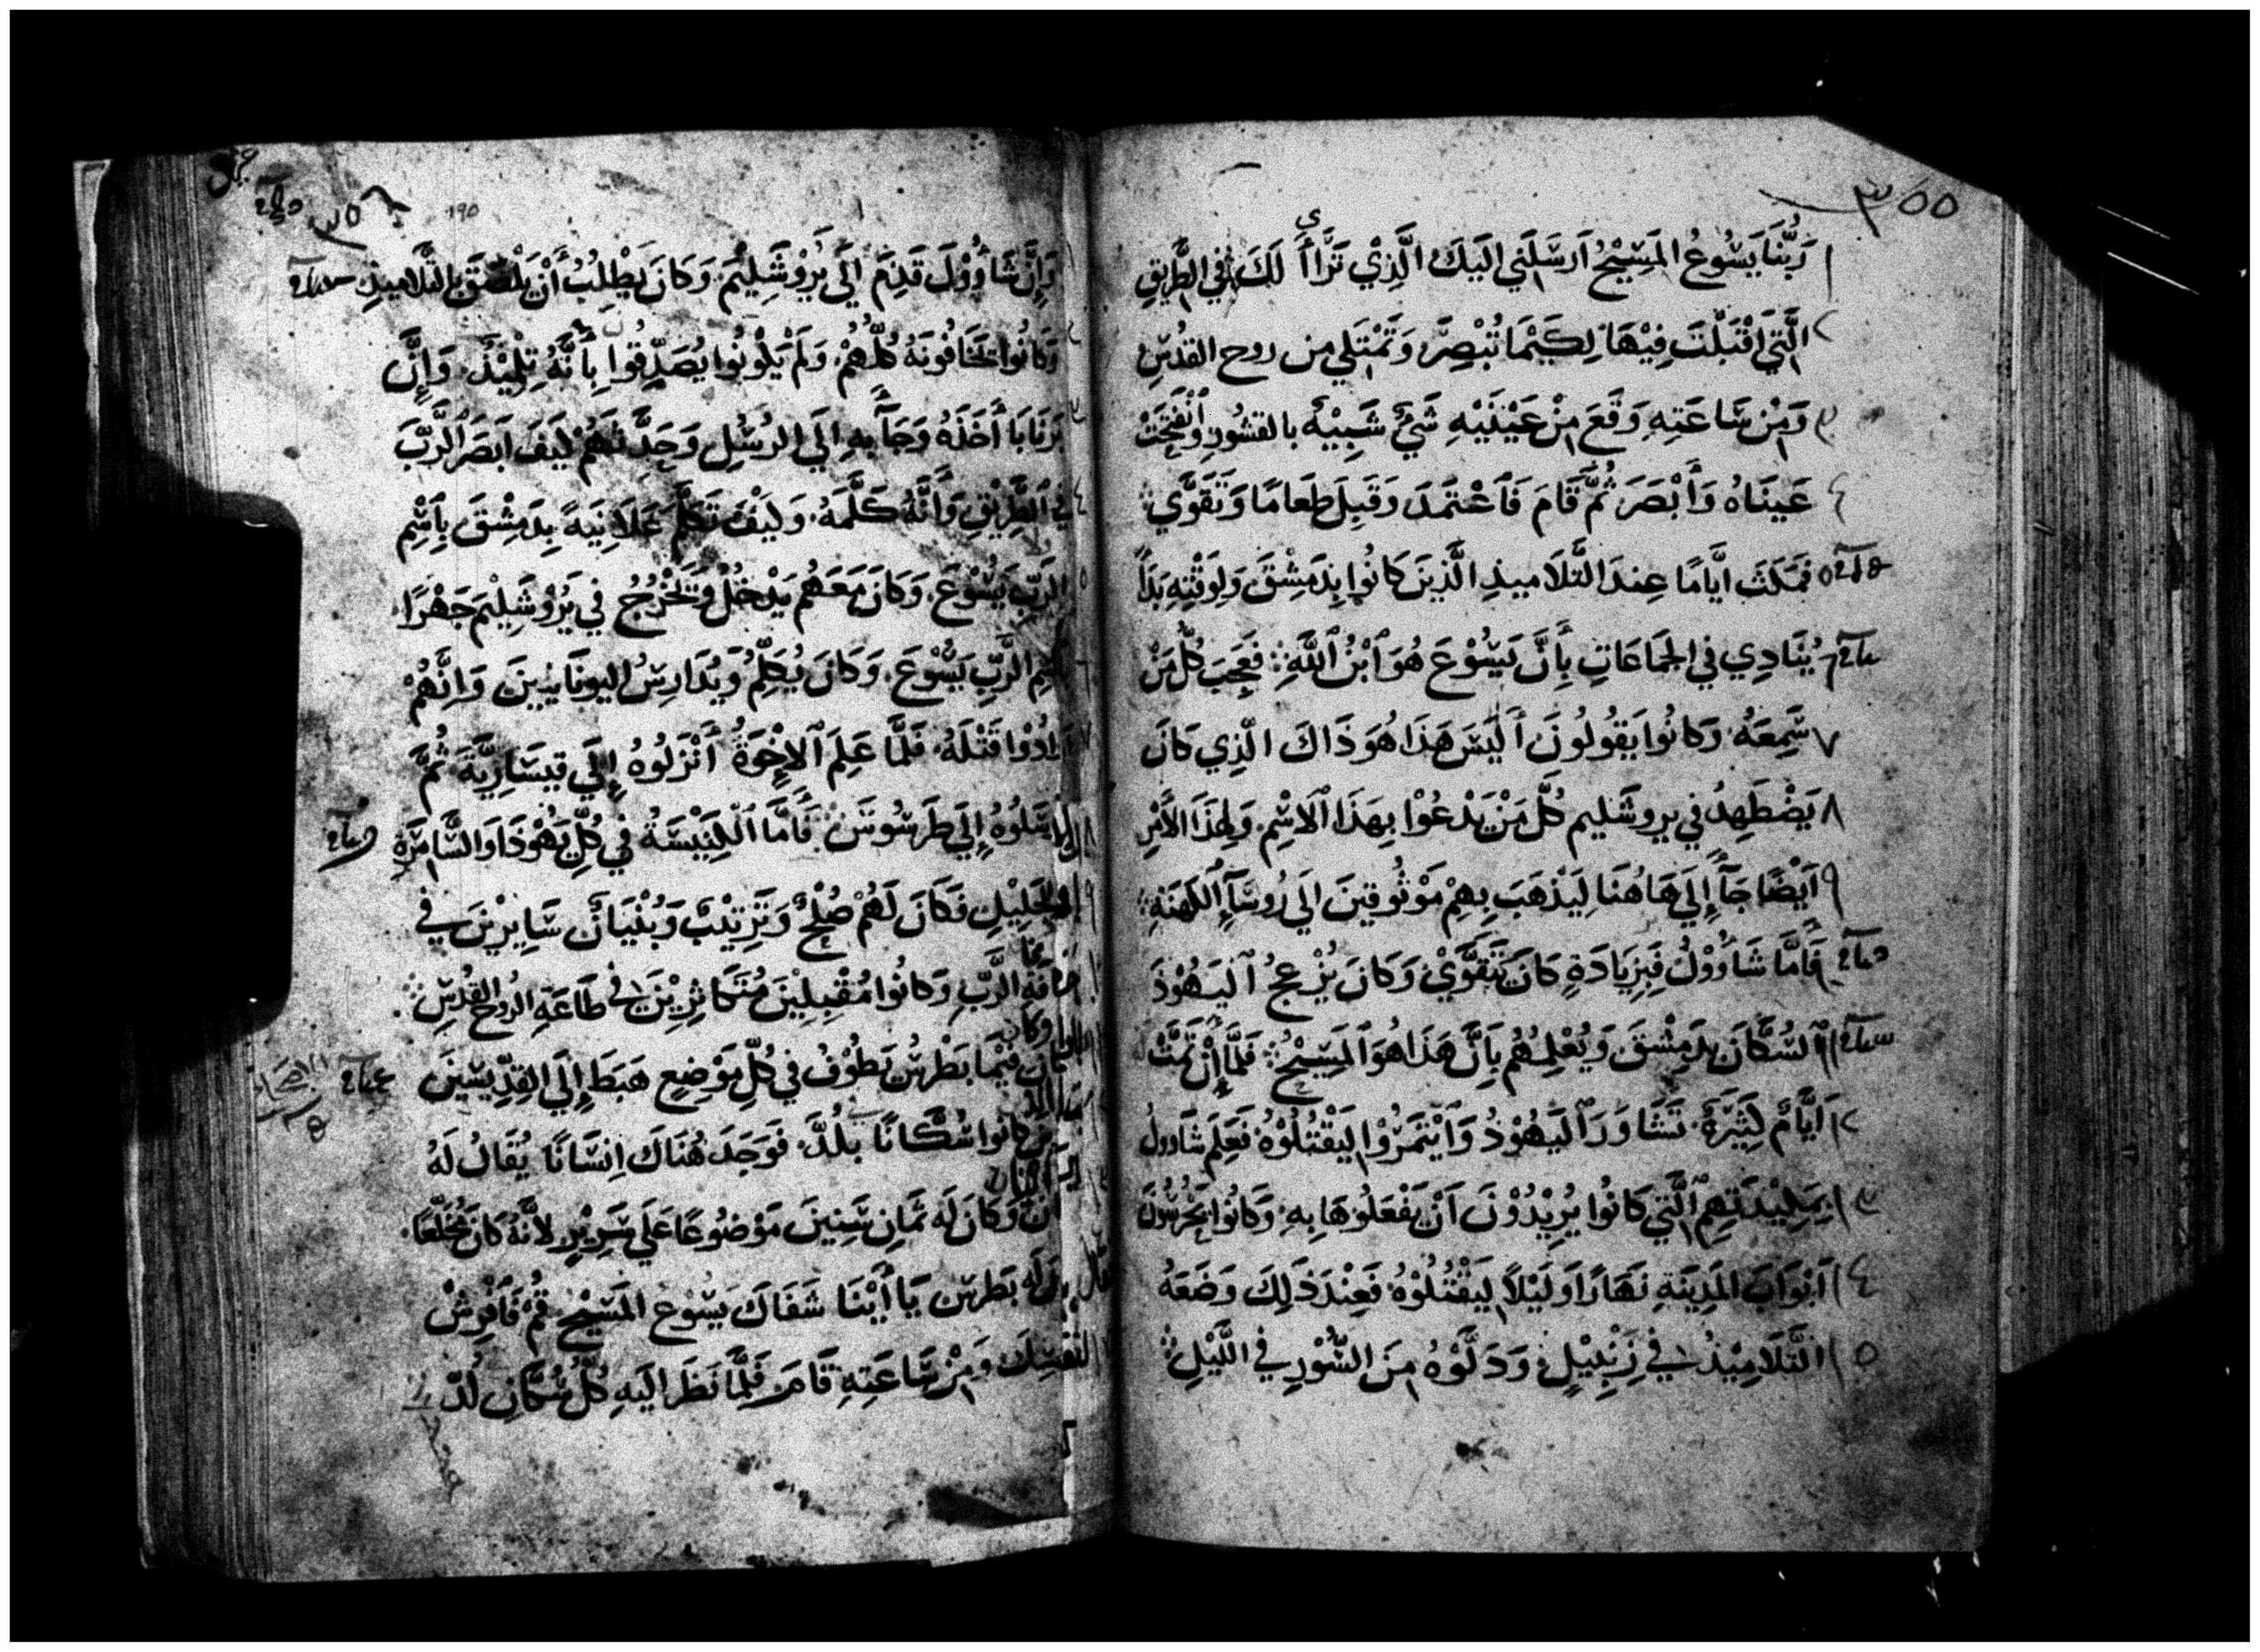 ٣٥٥
١ رَبُّنَا يَسُوعُ المَسِيْحُ اَرسَلَنِي اِلَيكَ الَّذِيْ تَرَاأَى لَكَ فِي الطَّرِيقِ
٢ الَّتِي اَقْبَلْتَ فِيْهَا لِكَيْمَا تُبْصِرَ وَتَمْتَلِي مِن روح القُدُسِ
٣ وَمِنْ سَاعَتِهِ وَقَعَ مِنْ عَيْنَيْهِ شَيْ شَبِيْهٌ بالقشُورِ وَانْفَتَحَتْ
٤ عَينَاهُ وَأَبْصَرَ ثُمَّ قَامَ فَاَعْتَمَدَ وَقَبِلَ طَعَامًا وَتَقَوَّي
٥ فَمَكَثَ ايَّامًا عِندَ التَّلَاميذِ الَّذِينَ كَانُوا بِدِمَشْقَ وَلِوَقْتِهِ بَدَأ
٦ يُنَادِي فِي الجَمَاعَاتِ بِأَنَّ يَسُوْعَ هُوَ اَبْنُ اَللَّهِ فَعَجِبَ كُلُّ مَنْ
٧ سَمِعَهُ وَكَانُوا يَقُولُونَ أَلَيسَ هَذَا هُوَ ذَاكَ الَّذِي كَانَ
٨ يَضْطَهِدُ فِي يروشَليم كُلَّ مَنْ يَدْعُوْا بِهَذَا اَلاسْمِ وَلِهَذَا الأَمْرِ
٩ اَيضًا جَآءَ إِلَي هَاهُنَا لِيَذْهَبَ بِهِمْ مَوْثُوقِينَ اِلَي رُوسَآءِ اَلكَهَنَةِ
١٠ فَأَمَّا شَاوُوْلُ فَبِزِيَادَةٍ كَانَ يَتَقَوَّيْ وَكَانَ يُزْعِجُ اَليَهُوْدَ
١١ اَلسُكَّانَ بِدِمَشْقَ وَيُعْلِمُهُم بِأَنَّ هَذَا هُوَ اَلمَسِيْحُ فَلَمَّا إِنْ تَمَّتْ
١٢ اَيَّامٌ كَثِيْرَةٌ تَشَاوَرَ اَليَهُوْدُ وَاَيْتَمَرُوْا لِيَقْتُلُوْهُ فَعَلِمَ شَاوولُ
١٣ بِمَكِيْدَتِهِمْ الَّتِي كَانُوا يُرِيْدُوْنَ اَنْ يَفْعَلُوهَا بِهِ وَكَانُوا يَحْرُسُونَ
١٤ اَبْوَابَ المَدِينَةِ نَهَارًا وَلَيْلاً لِيَقْتُلُوْهُ فَعِنْدَ ذَلِكَ وَضَعَهُ
١٥ التَّلَامِيْذُ فِي زِنْبِيْلٍ وَدَلَّوْهُ مِنَ السُّوْرِ فِي اللَّيْلِ
٣٥٦
190
وَإِنَّ شَاوُوْلَ قَدِمَ اِلَى يَرُوْشَلِيْمَ وَكَانَ يَطْلُبُ أَنْ يَلْصَقَ بِالتَّلَاميذِ
وَكَانُوا يَخَافُونَهُ كُلُّهُمْ وَلَمْ يَكُونُوا يُصَدِّقُوا بِأَنَّهُ تِلْمِيْذٌ وَإِنَّ
بَرنَابَا أَخَذَهُ وَجَآءَ بِهِ اِلَي الرُسُلِ وَحَدَّثَهُمْ كَيْفَ اَبصَرَ الرَّبَّ
فِي الطَّرِيْقِ وَأَنَّهُ كَلَّمَهُ وَكَيْفَ تَكَلَّمَ عَلَانِيَهً بِدِمَشْقَ بِاَسْمِ
الرَبِّ يَسُوْعَ وَكَانَ مَعَهُم يَدْخُلُ وَيَخْرُجُ فِي يَرُوْشَلِيْمَ جَهْرًا
الرَّبِّ يَسُوْعَ وَكَانَ يُكَلِّمُ وَيُدَارِسُ اليُونَانِيينَ وَاِنَّهُمْ
اَرَادُوْا قَتْلَهُ فَلَمَّا عَلِمَ اَلإِخْوَةُ أَنْزَلُوهُ إِلَي قيسَارِيَّةَ ثُمَّ
اَرسَلُوهُ إِلَي طَرسُوسَ فَأَمَّا اَلكَنِيْسَةُ فِي كُلِّ يَهُوْدَا وَالسَّامِرَةِ
وَالجَلِيْلِ فَكَانَ لَهُمْ صُلْحٌ وَتَرْتِيْبٌ وَبُنْيَانٌ سَايِرِيْنَ فِي
مَخَافَةِ الرَّبِّ وَكَانُوا مُقْبِلِيْنَ مُتَكَاثِرِيْنَ فِي طَاعَةِ الرُوحِ القُدُسِ
وَكَانَ فِيْمَا بَطْرسُ يَطُوْفُ فِي كُلِّ مَوْضِعٍ هَبَطَ إِلَي القِدِّيسِينَ
كَانُوا سُكَّانًا بَلُدَّ فَوَجَدَ هُنَاكَ اِنسَانًا يُقَالُ لَهُ
وَكَانَ لَهُ ثَمَانِ سِنِينَ مَوْضُوعًا عَلَي سَرِيْرٍ لأَنَّهُ كَانَ مُخَلَّعًا
لَهُ بَطرسُ يَا أَيْنَا شَفَاكَ يَسُوعُ المَسِيْحُ قُمْ فَافْرِشْ
لنفسِكَ وَمِنْ سَاعَتِهِ قَامَ فَلَمَّا نَظَرَ اِلَيهِ كُلُّ سُكَّانِ لُدَّ